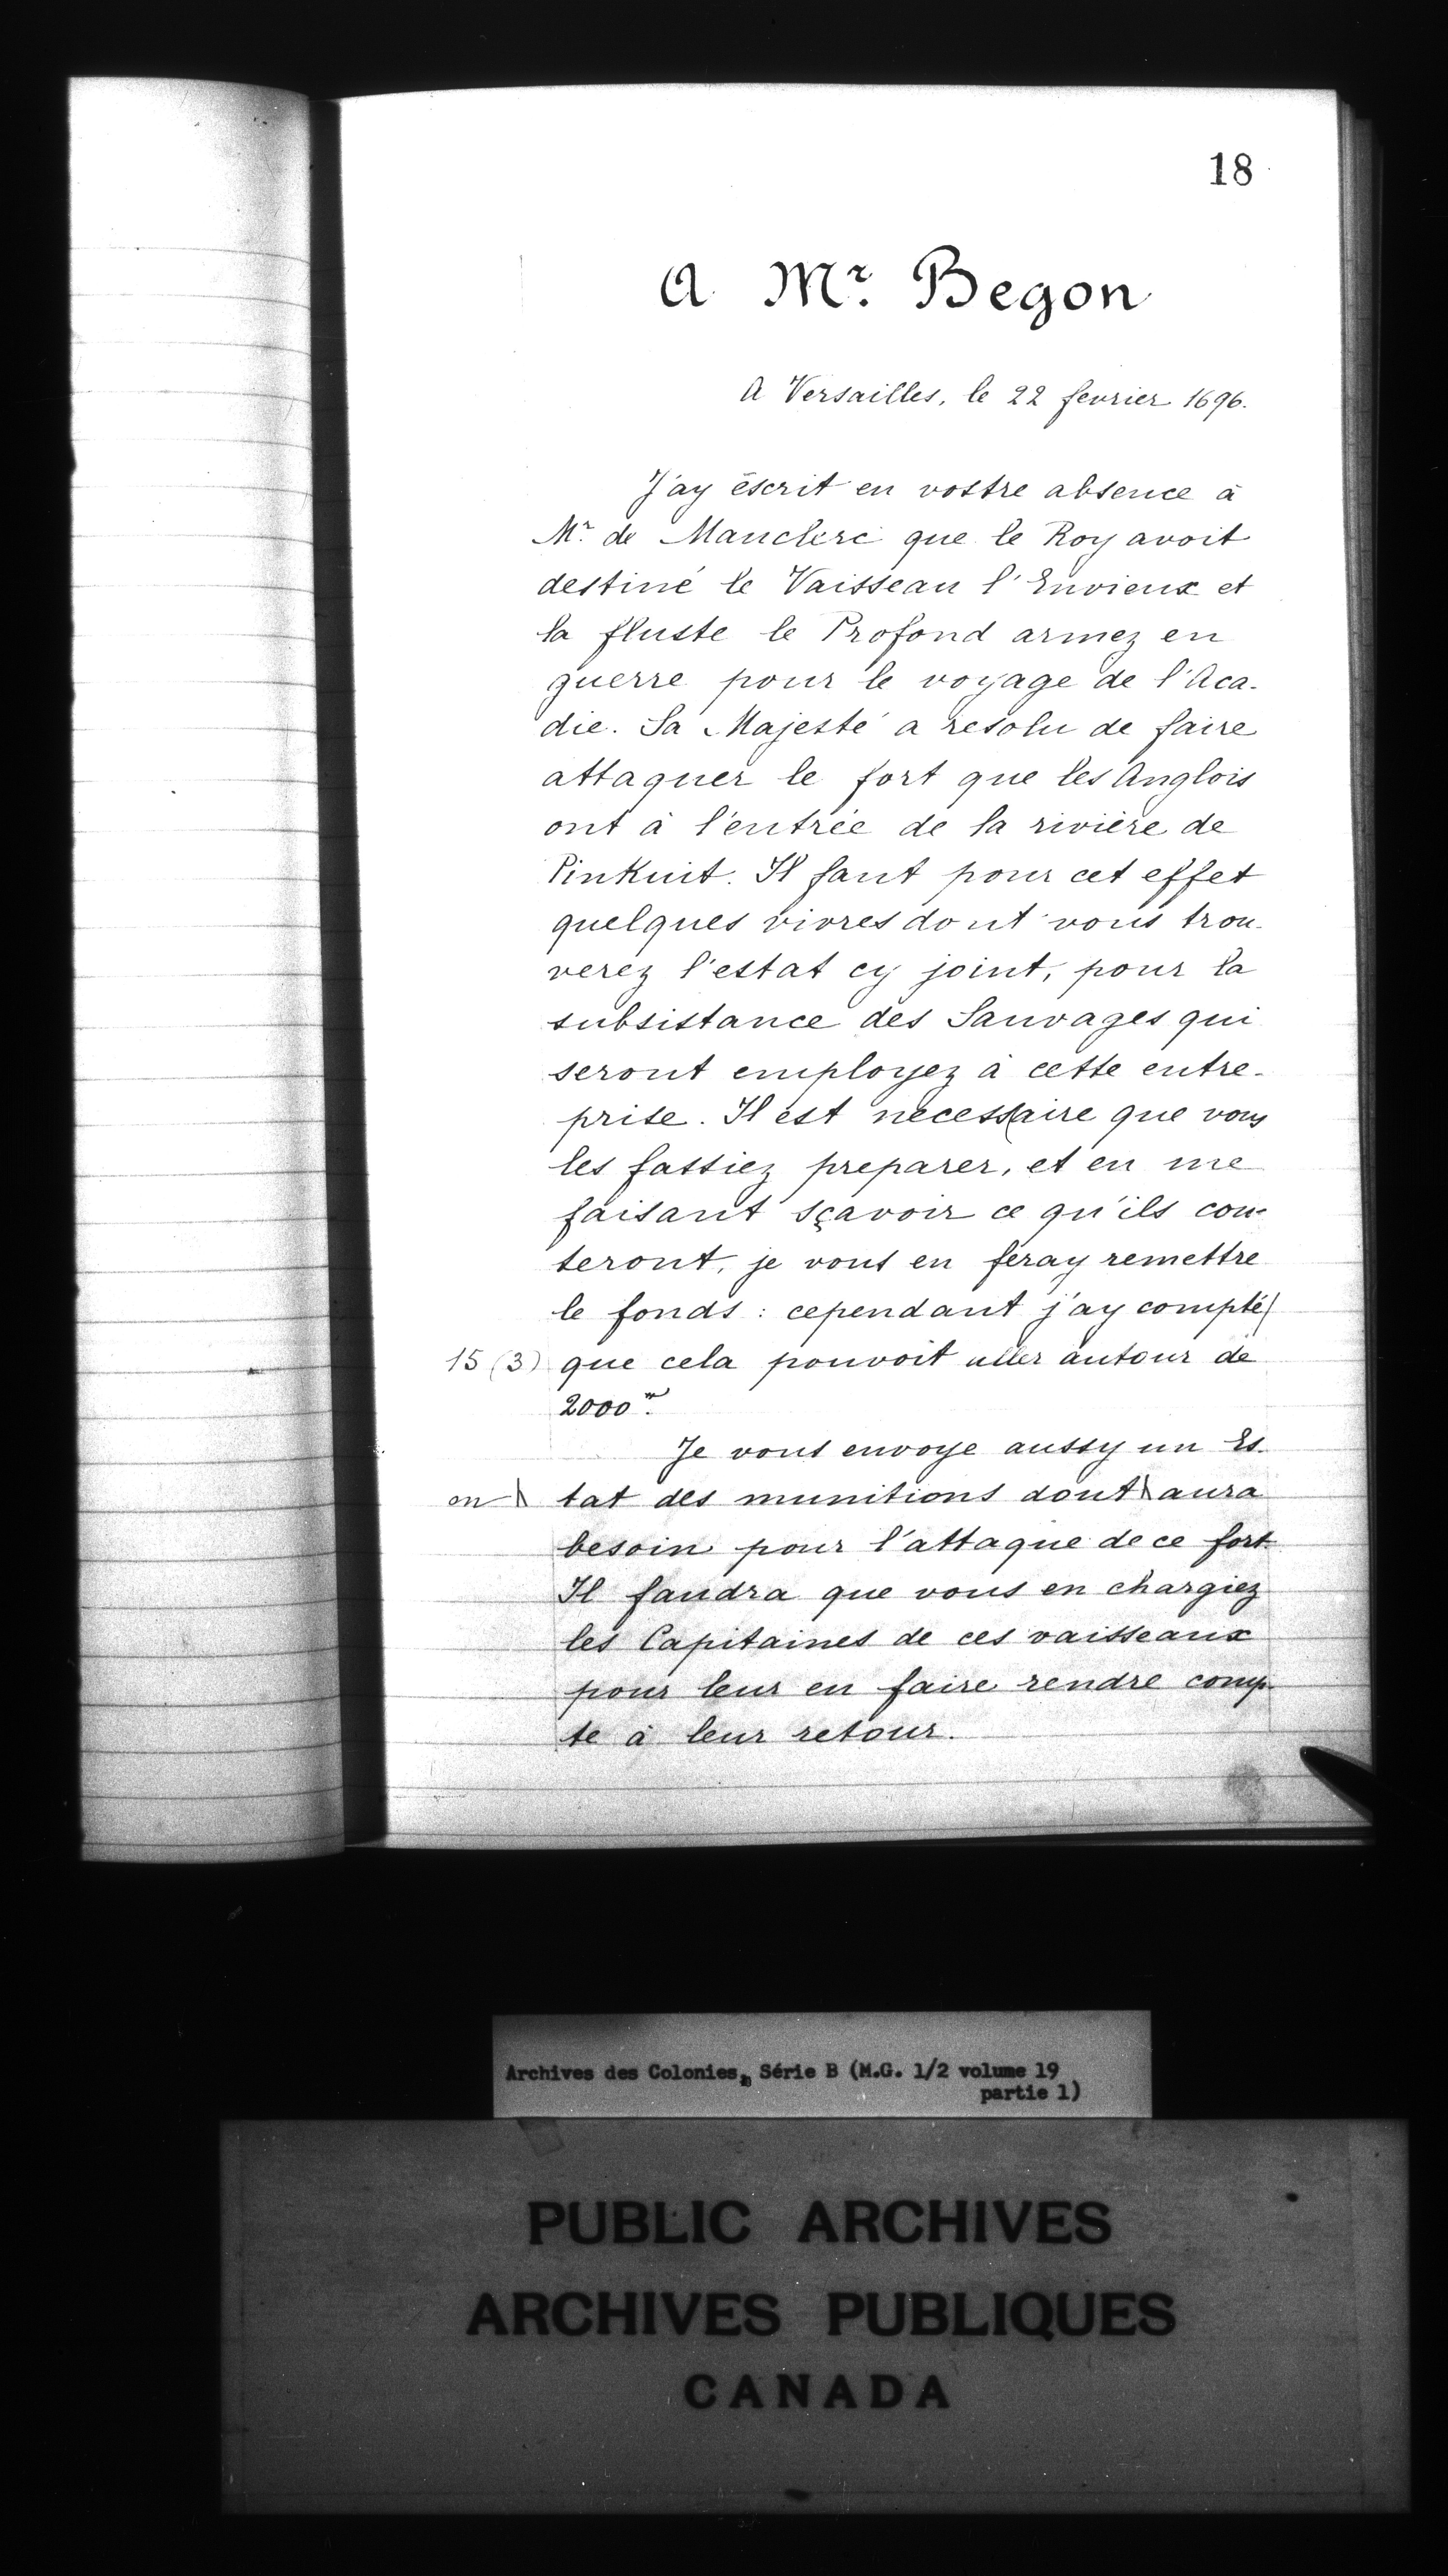 18
A Mr. Begon
A Versailles, le 22 fevrier 1696.
J'ay éscrit en vostre absence à
Mr. de Manclerc que le Roy avoit
destiné le Vaisseau l'Envieux et
la fluste le Profond armez en
guerre pour le voyage de l'Aca-
die. Sa Majesté a resolu de faire
attaquer le fort que les Anglois
ont à l'entrée de la rivière de
PinKuit. Il faut pour cet effet
quelques vivres dont vous trou-
verez l'estat cy joint, pour la
subsistance des Sauvages qui
seront employez à cette entre-
prise. Il est necessaire que vous
les fassiez preparer, et en me
faisant sçavoir ce qu'ils cou-
teront, je vous en feray remettre
le fonds : cependant j'ay compté/
15 (3) que cela pouvoit aller autour de
2000
Je vous envoye aussy un Es-
on \ tat des munitions dont \ aura
besoin pour l'attaque de ce fort.
Il faudra que vous en chargiez
les Capitaines de ces vaisseaux
pour leur en faire rendre comp-
te à leur retour.
Archives des Colonies, Série B (M.G. 1/2 volume 19
partie 1)
PUBLIC ARCHIVES
ARCHIVES PUBLIQUES
CANADA